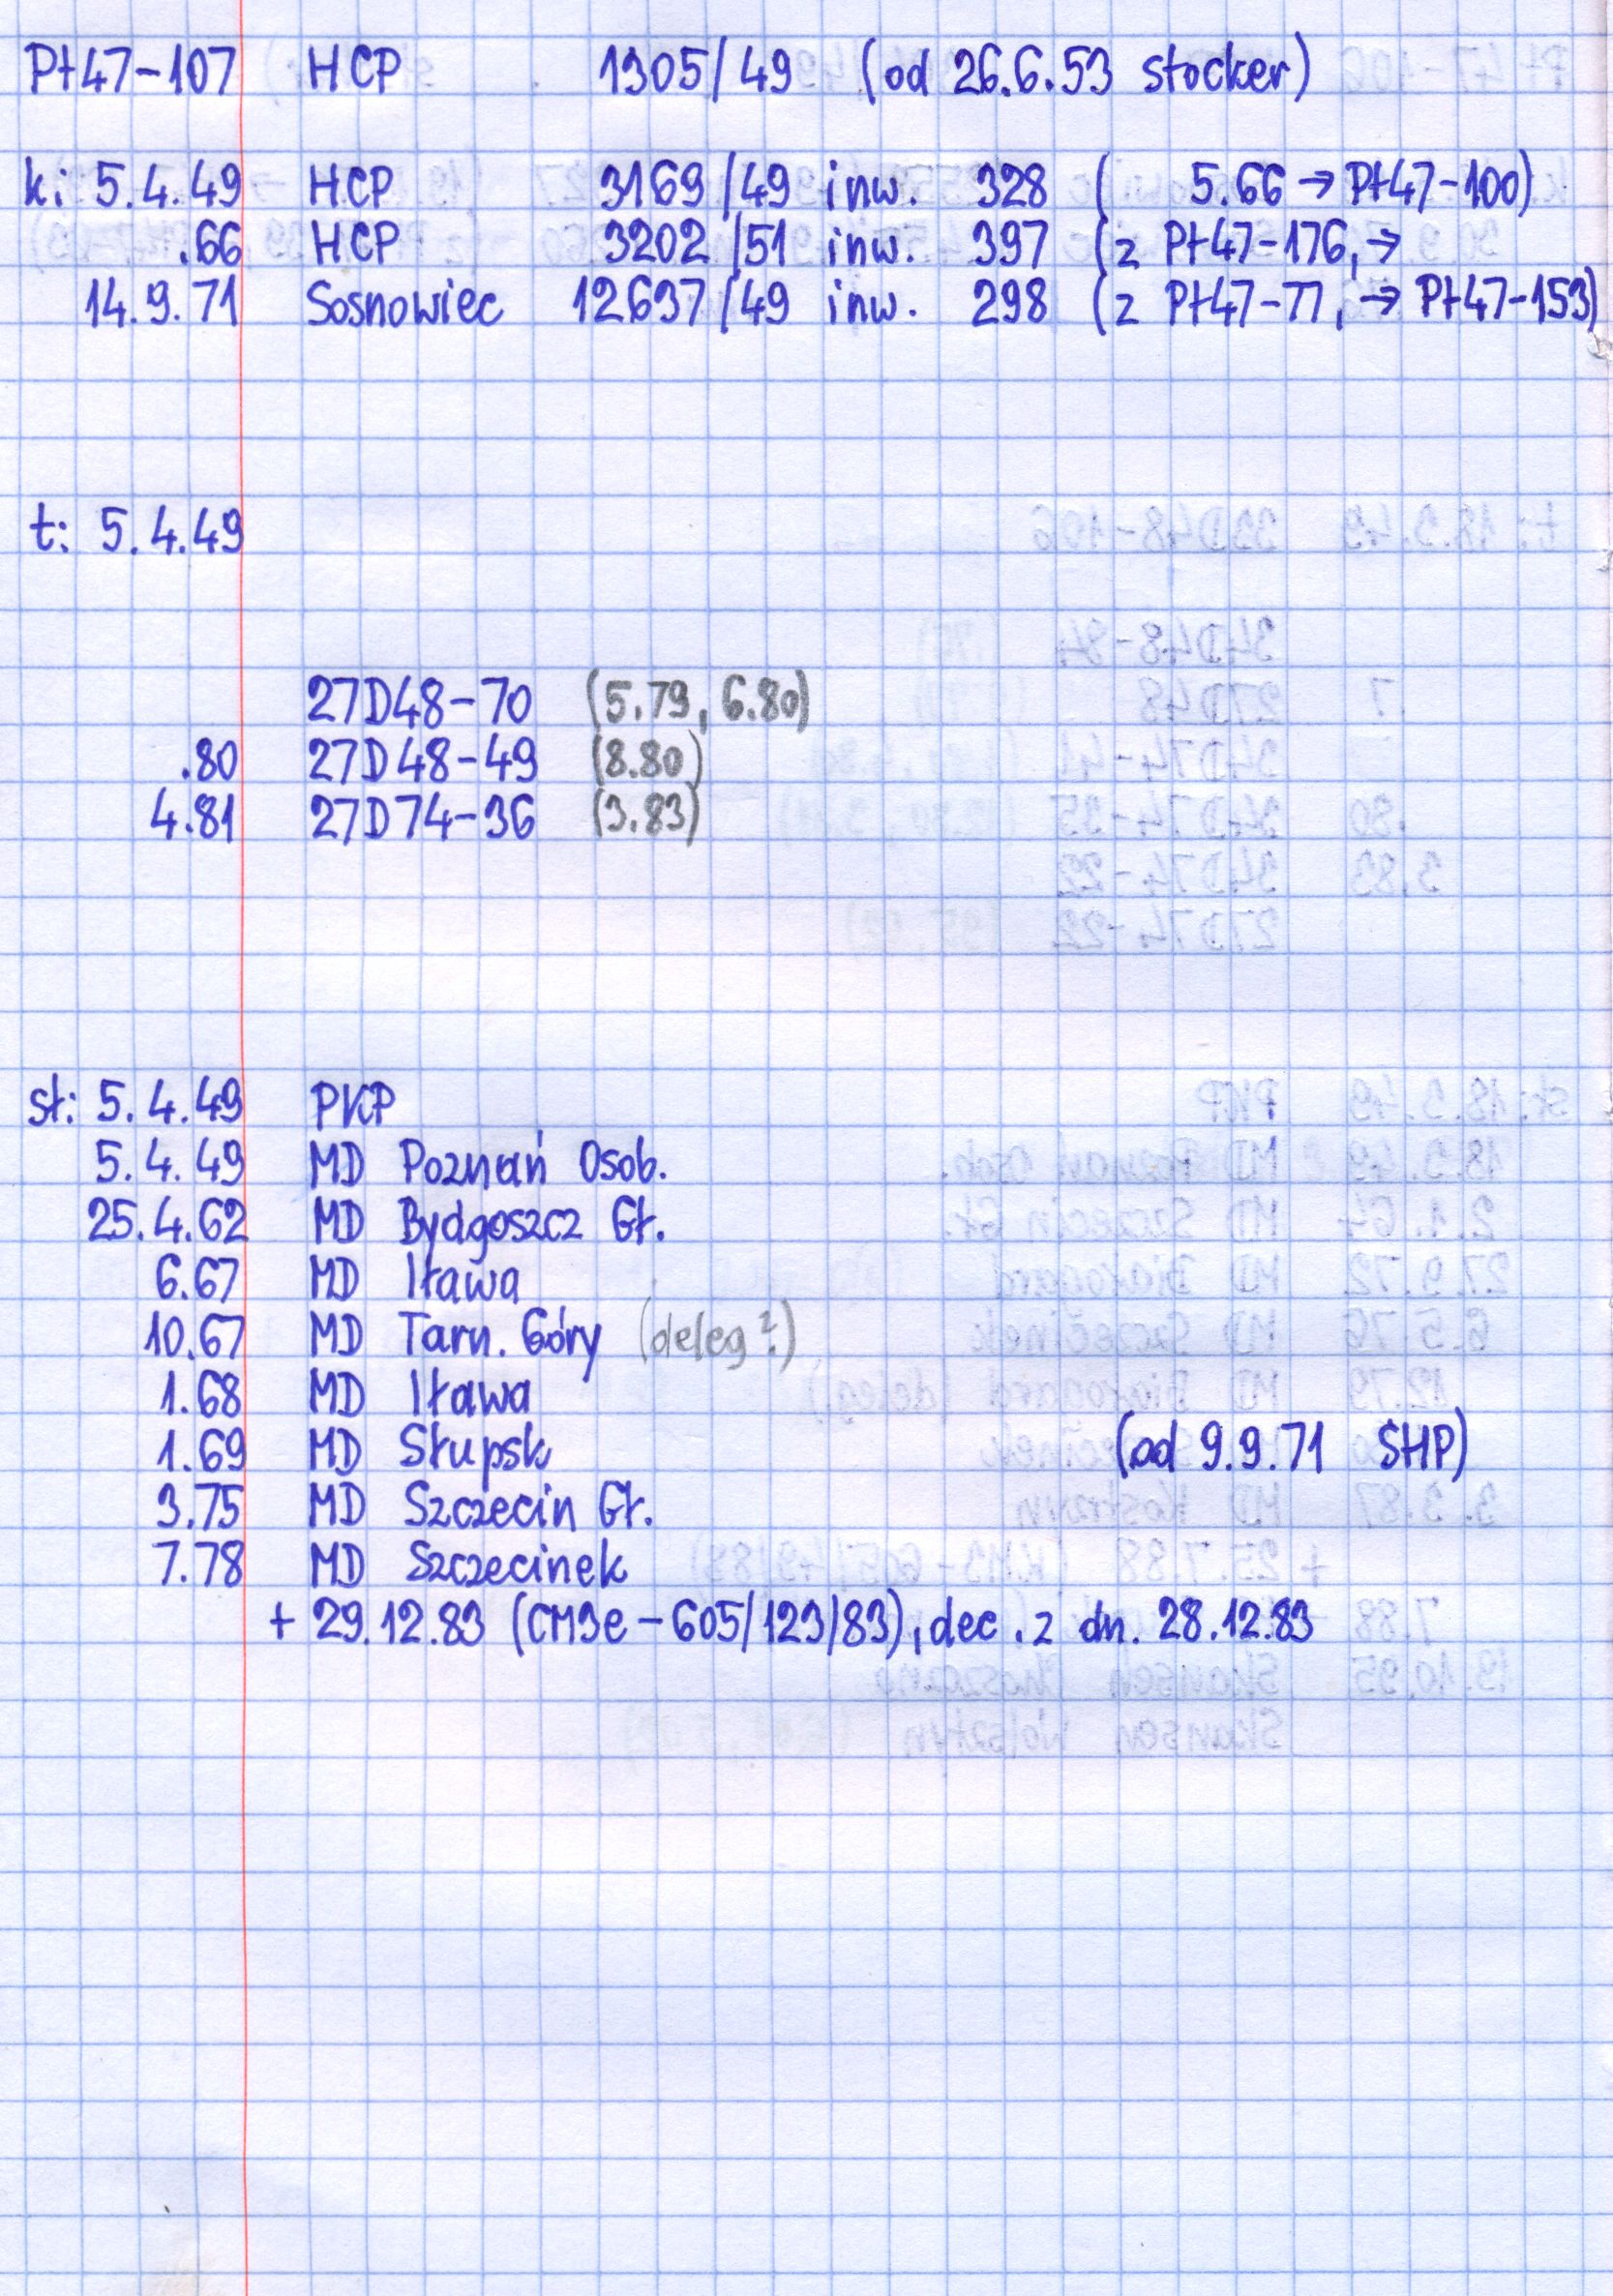 Pt47-107 HCP 1305/49 (od 26.6.53 stocker)
k: 5.4.49 HCP 3169/49 inw. 328 ( 5.66 → Pt47-100)
.66 HCP 3202/51 inw. 397 (z Pt47-176, →
14.9.71 Sosnowiec 12637/49 inw. 298 (z Pt47-77, → Pt47-153)
t: 5.4.49
27D48-70 (5.79, 6.80)
.80 27D48-49 (8.80)
4.81 27D74-36 (3.83)
st: 5.4.49 PKP
5.4.49 MD Poznań Osob.
25.4.62 MD Bydgoszcz Gł.
6.67 MD Iława
10.67 MD Tarn. Góry (deleg?)
1.68 MD Iława
1.69 MD Słupsk (od 9.9.71 SHP)
3.75 MD Szczecin Gł.
7.78 MD Szczecinek
+ 29.12.83 (CM3e-605/123/83), dec. z dn. 28.12.83